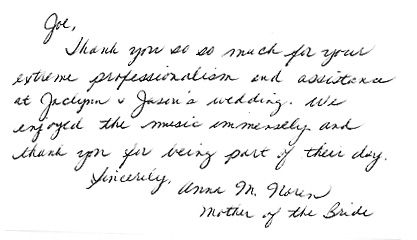 Joe,
Thank you so so much for your
extreme professionalism and assistance
at Jaclynn & Jason's wedding. We
enjoyed the music immensely and
thank you for being part of their day.
Sincerely, Anna M. Noren
Mother of the Bride